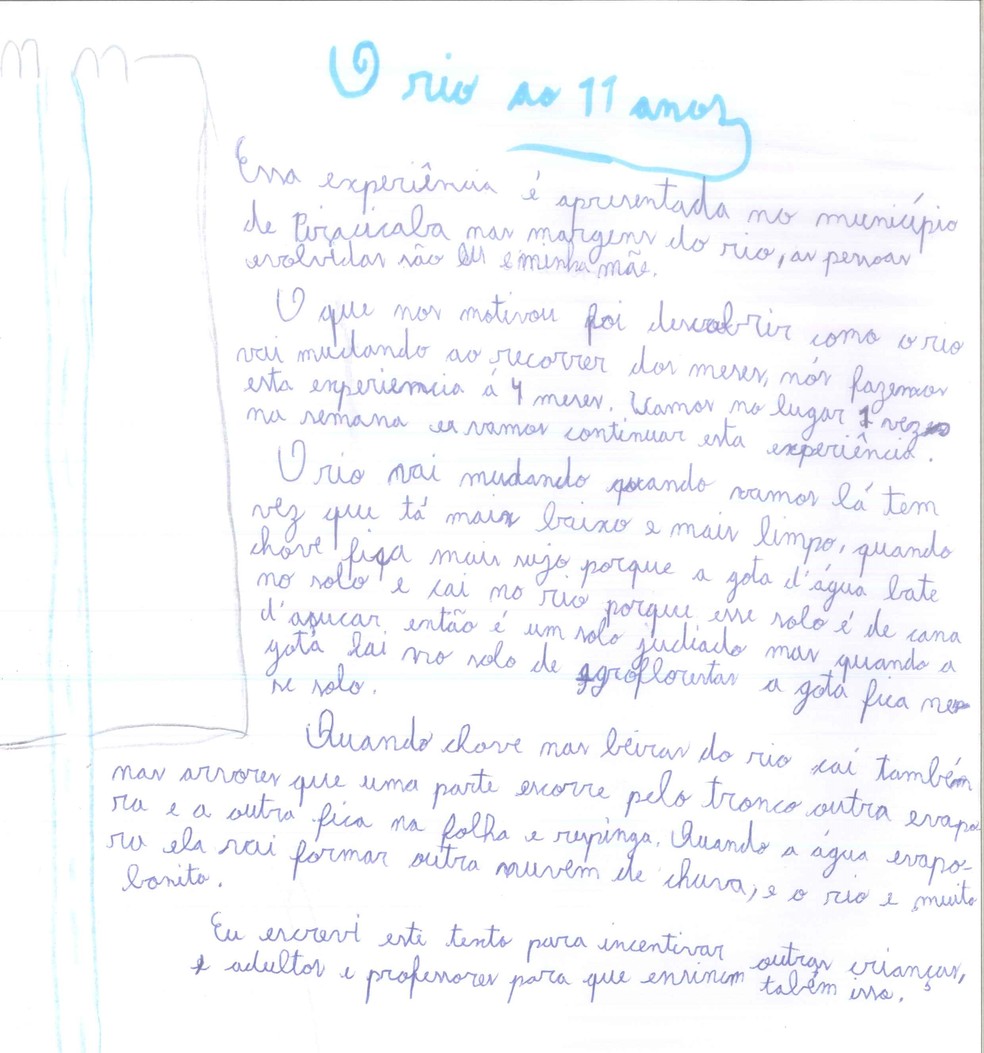 O rio ao 11 anos
Essa experiência é apresentada no município
de Piracicaba nas margens do rio, as pessoas
evolvidas são eu e minha mãe.
O que nos motivou foi descobrir como o rio
vai mudando ao recorrer dos meses, nós fazemos
esta experiemcia á 4 meses. Vamos no lugar 1 vez
na semana e vamos continuar esta experiência.
O rio vai mudando quando vamos lá tem
vez que tá mais baixo e mais limpo, quando
chove fica mais sujo porque a gota d'água bate
no solo e cai no rio porque esse solo é de cana
d'açucar então é um solo judiado mas quando a
gota cai no solo de agroflorestas a gota fica nes
se solo.
Quando chove nas beiras do rio cai também
nas arvores que uma parte escorre pelo tronco outra evapo
ra e a outra fica na folha e respinga. Quando a água evapo-
ra ela vai formar outra nuvem de chuva, e o rio e muito
bonito.
Eu escrevi este texto para incentivar outras crianças,
e adultos e professores para que ensinem tabém isso.